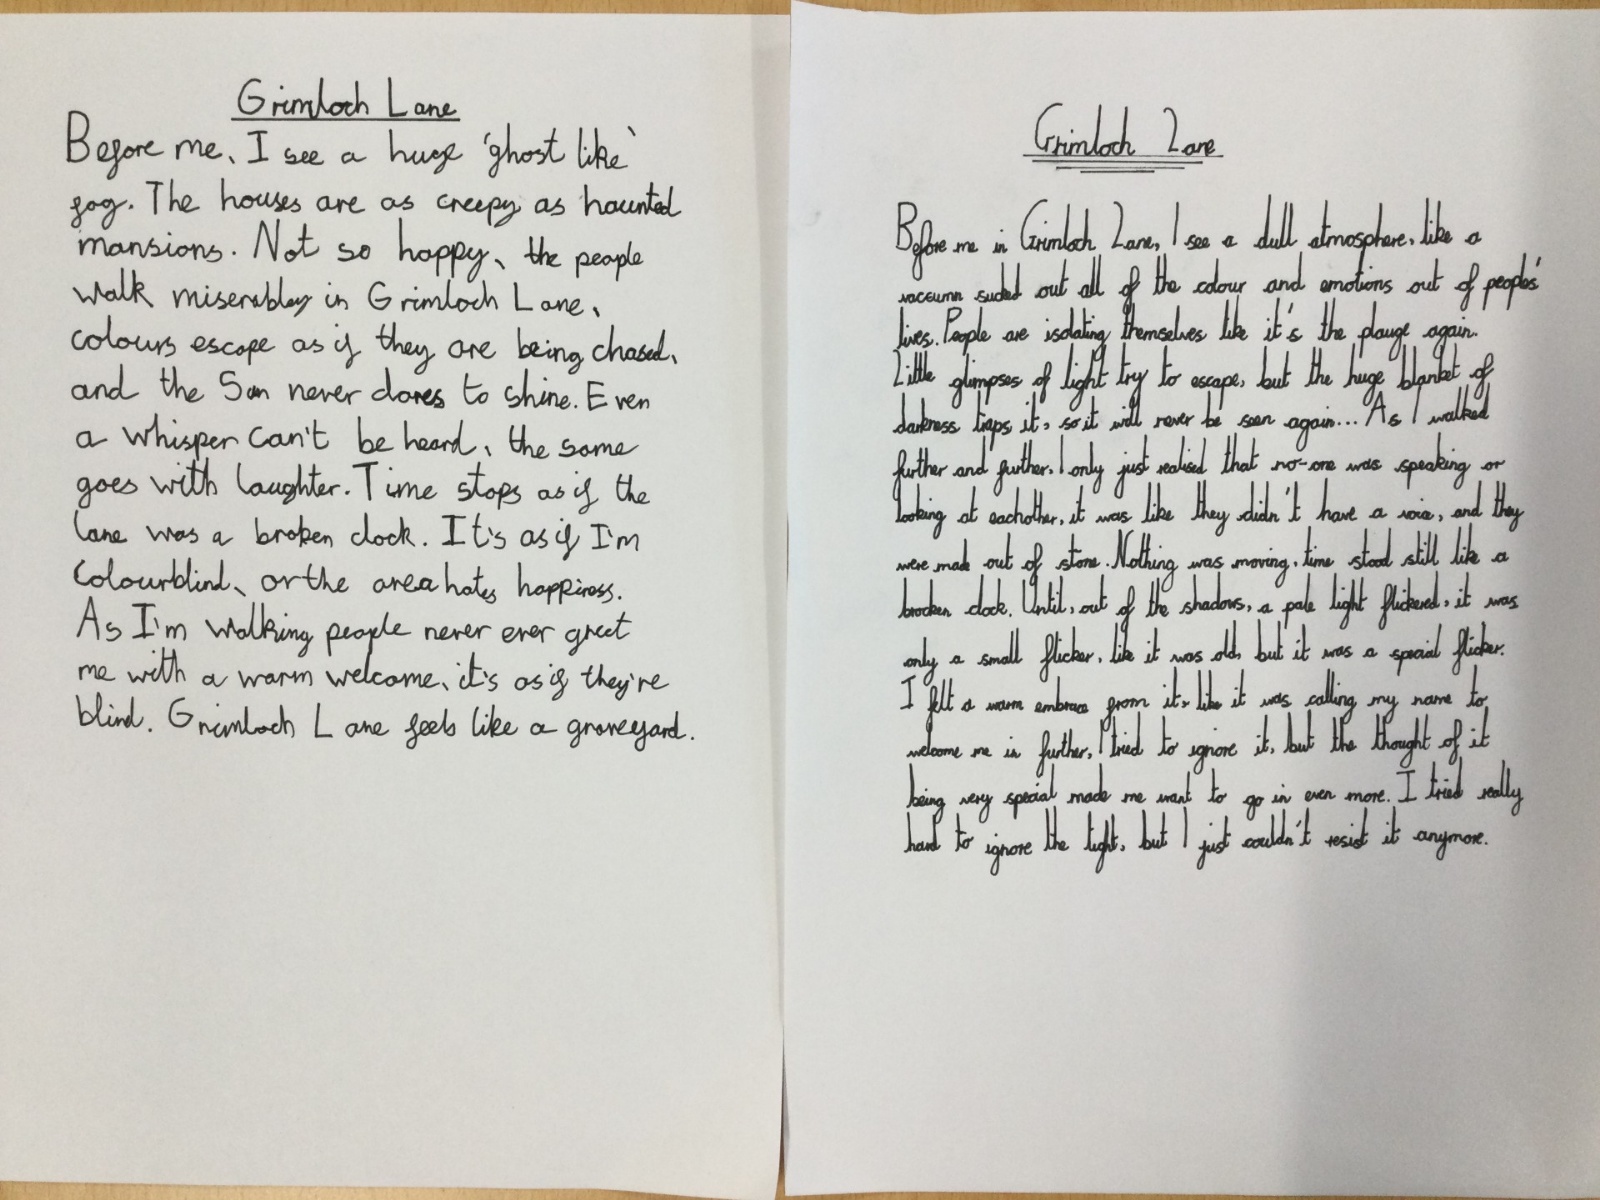 Grimloch Lane
Before me, I see a huge 'ghost like'
fog. The houses are as creepy as haunted
mansions. Not so happy, the people
walk miserabley in Grimloch Lane,
colours escape as if they are being chased,
and the Sun never dares to shine. Even
a whisper can't be heard, the same
goes with laughter. Time stops as if the
lane was a broken clock. It's as if I'm
Colourblind, or the area hates happiness.
As I'm walking people never ever greet
me with a warm welcome, it's as if they're
blind. Grimloch Lane feels like a graveyard.
Grimloch Lane
Before me in Grimloch Lane, I see a dull atmosphere, like a
vaccumn sucked out all of the colour and emotions out of peoples'
lives. People are isolating themselves like it's the plauge again.
Little glimpses of light try to escape, but the huge blanket of
darkness traps it, so it will never be seen again... As I walked
further and further, I only just realised that no-one was speaking or
looking at eachother, it was like they didn't have a voice, and they
were made out of stone. Nothing was moving, time stood still like a
brocken clock. Until, out of the shadows, a pale light flickered, it was
only a small flicker, like it was old, but it was a special flicker.
I felt a warm embrace from it, like it was calling my name to
welcome me in further, I tried to ignore it, but the thought of it
being very special made me want to go in even more. I tried really
hard to ignore the light, but I just couldn't resist it anymore.